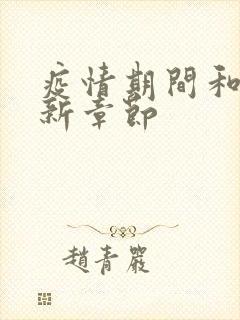 疫情期間和
新章節
趙青嚴